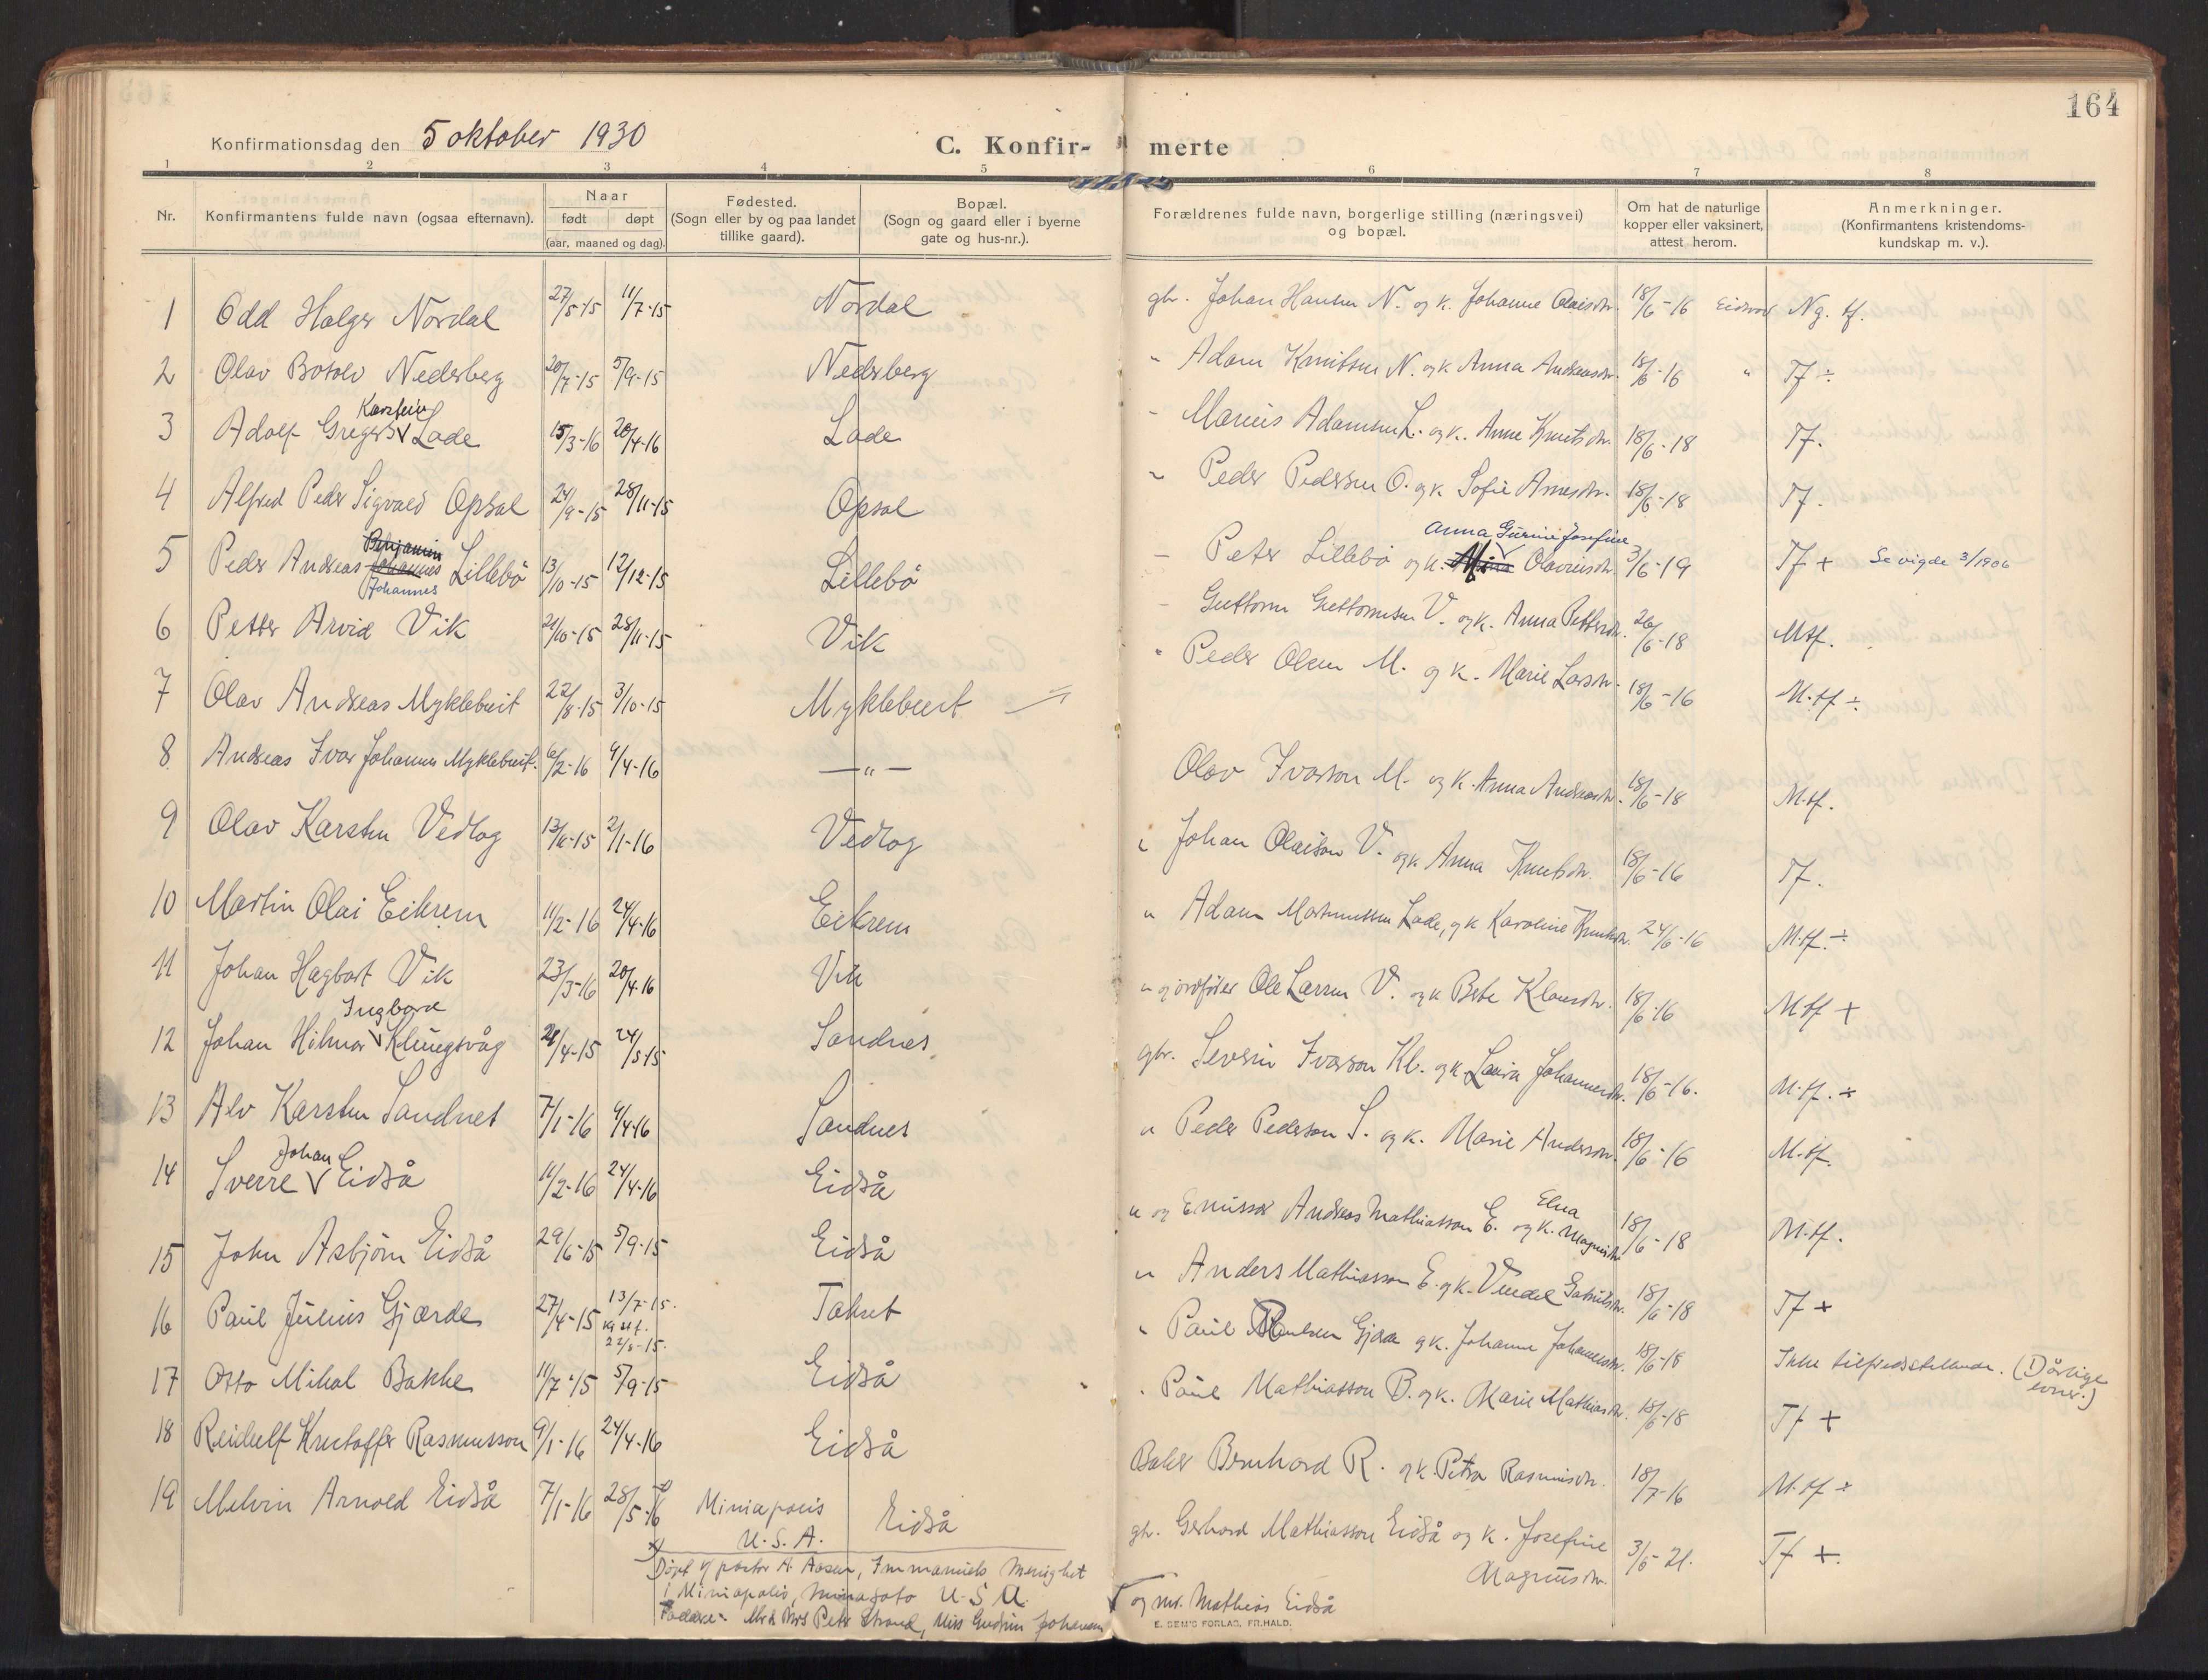 164
Konfirmationsdag den 5 oktober 1930
C. Konfir- merte
1 2 3 4 5 6 7 8
Nr.
Konfirmantens fulde navn (ogsaa efternavn).
Naar
født døpt
(aar, maaned og dag).
Fødested.
(Sogn eller by og paa landet
tillike gaard).
Bopæl.
(Sogn og gaard eller i byerne
gate og hus-nr.).
Forældrenes fulde navn, borgerlige stilling (næringsvei)
og bopæl.
Om hat de naturlige
kopper eller vaksinert,
attest herom.
Anmerkninger.
(Konfirmantens kristendoms-
kundskap m. v.).
1 Odd Holger Nordal 27/5-15 11/7-15 Nordal gbr. Johan Hansen N. og k. Johanne Olaisdtr. 18/6-16 Ng. tf.
2 Olav Botolv Nedreberg 20/7-15 5/9-15 Nedreberg " Adam Knutsen N. og k Anna Andreasdtr. 18/6-16 " Tf ÷
Karstein
3 Adolf Gregers V Lade 15/3-16 20/4-16 Lade - Marius Adamsen L. og k. Anne Knutsdtr. 18/6-18 Tf.
4 Alfred Peder Sigvald Opsal 24/9-15 28/11-15 Opsal " Peder Pedersen O. og k Sofie Arnesdtr. 18/6-18 Tf.
Benjamin Anna Gurine Josefine
5 Peder Andreas Johannes Lillebø 13/10-15 12/12-15 Lillebø - Peter Lillebø og k. Olavinsdtr. 3/6-19 Tf + Se vigde 3/1906
Johannes
6 Petter Arvid Vik 21/10-15 28/11-15 Vik - Guttorm Guttormsen V. og k. Anna Pettersdtr. 26/6-18 Mtf.
7 Olav Andreas Myklebust 22/8-15 3/10-15 Myklebust " Peder Olsen M. og k. Marie Larsdtr. 18/6-16 M.tf ÷
8 Andreas Ivar Johannes Myklebust 6/2-16 9/4-16 — " — Olav Ivarson M. og k. Anna Andreasdtr. 18/6-18 M.tf.
9 Olav Karsten Vedlog 13/11-15 2/1-16 Vedlog " Johan Olaison V. og k Anna Knutsdtr. 18/6-16 Tf.
10 Martin Olai Eikrem 11/2-16 24/4-16 Eikrem " Adam Martinussen Lade, og k Karoline Knutsdtr. 24/6-16 M.tf. ÷
11 Johan Hagbart Vik 23/3-16 20/4-16 Vik " og ordfører Ole Larsen V. og k Berte Klausdtr. 18/6-16 Mtf +
Ingbard
12 Johan Hilmar V Klungsvåg 21/4-15 24/5-15 Sandnes gbr. Severin Ivarson Kl. og k. Laura Johannesdtr. 18/6-16. M.tf. +
13 Alv Karsten Sandnes 7/1-16 9/4-16 Sandnes " Peder Pederson S. og k. Marie Andersdtr. 18/6-16 M.tf.
Johan Elna
14 Sverre V Eidså 11/2-16 24/4-16 Eidså " og Emissær Andreas Mathiasson E. og k. Magnusdtr 18/6-18 M.tf.
15 John Asbjørn Eidså 29/6-15 5/9-15 Eidså " Anders Mathiasson E. og k. Vendel Gabrielsdtr. 18/6-18 Tf +
16 Paul Julius Gjærde 27/4-15 13/7-15. Takset " Paul Paulsen Gjæra og k. Johanne Johannesdtr. 18/6-18 Ikke tilfredsstillende. (Dårlige
22/8-15. evner.)
17 Otto Mikal Bakke 11/7-15 5/9-15 Eidså " Paul Mathiasson B. og k. Marie Mathiasdtr. 18/6-18 Tf +
18 Reidulf Kristoffer Rasmusson 9/1-16 24/4-16 Eidså Baker Bernhard R. og k. Petra Rasmusdtr. 18/7-16 M.tf +
19 Melvin Arnold Eidså 7/1-16 28/5-16 x) Miniapolis Eidså gbr. Gerhard Mathiasson Eidså og k. Josefine 3/5-21. Tf +
U.S.A. Magnusdtr.
x) Døpt v/ pastor A. Aasen, Immanuels Menighet
i Miniapolis, Minnasota U.S.A.
Faddere: Mr & Mrs Peter Strand, Miss Gudrun Johansen V og mr. Mathias Eidså
E. SEM'S FORLAG, FR.HALD.